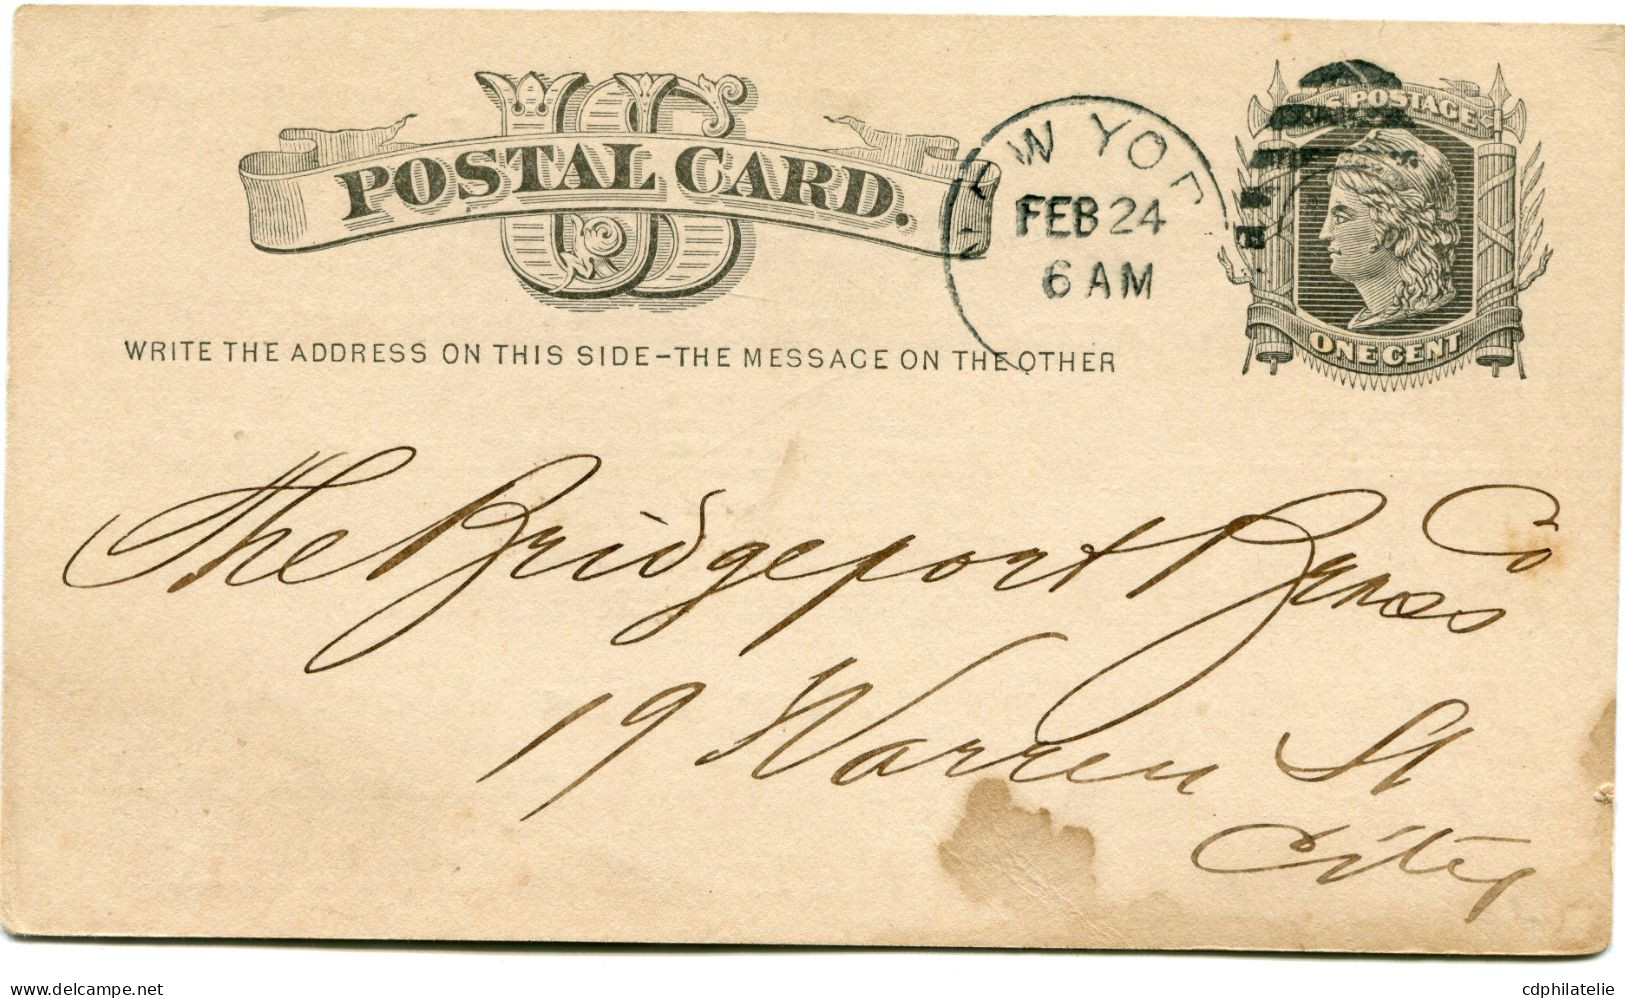 US
POSTAL CARD.
NEW YOR
FEB 24
6 AM
U.S. POSTAGE
ONE CENT
WRITE THE ADDRESS ON THIS SIDE–THE MESSAGE ON THE OTHER
The Bridgeport Brass Co
19 Warren St
City
www.delcampe.net
cdphilatelie